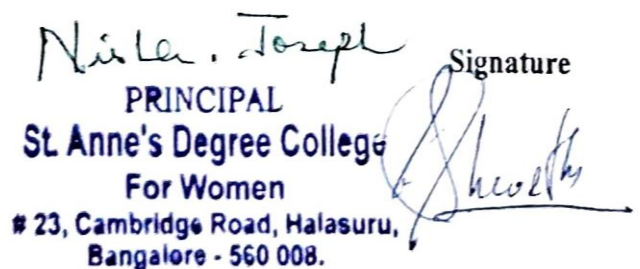 Joseph
Signature
PRINCIPAL
St. Anne's Degree College
For Women
# 23, Cambridge Road, Halasuru,
Bangalore - 560 008.